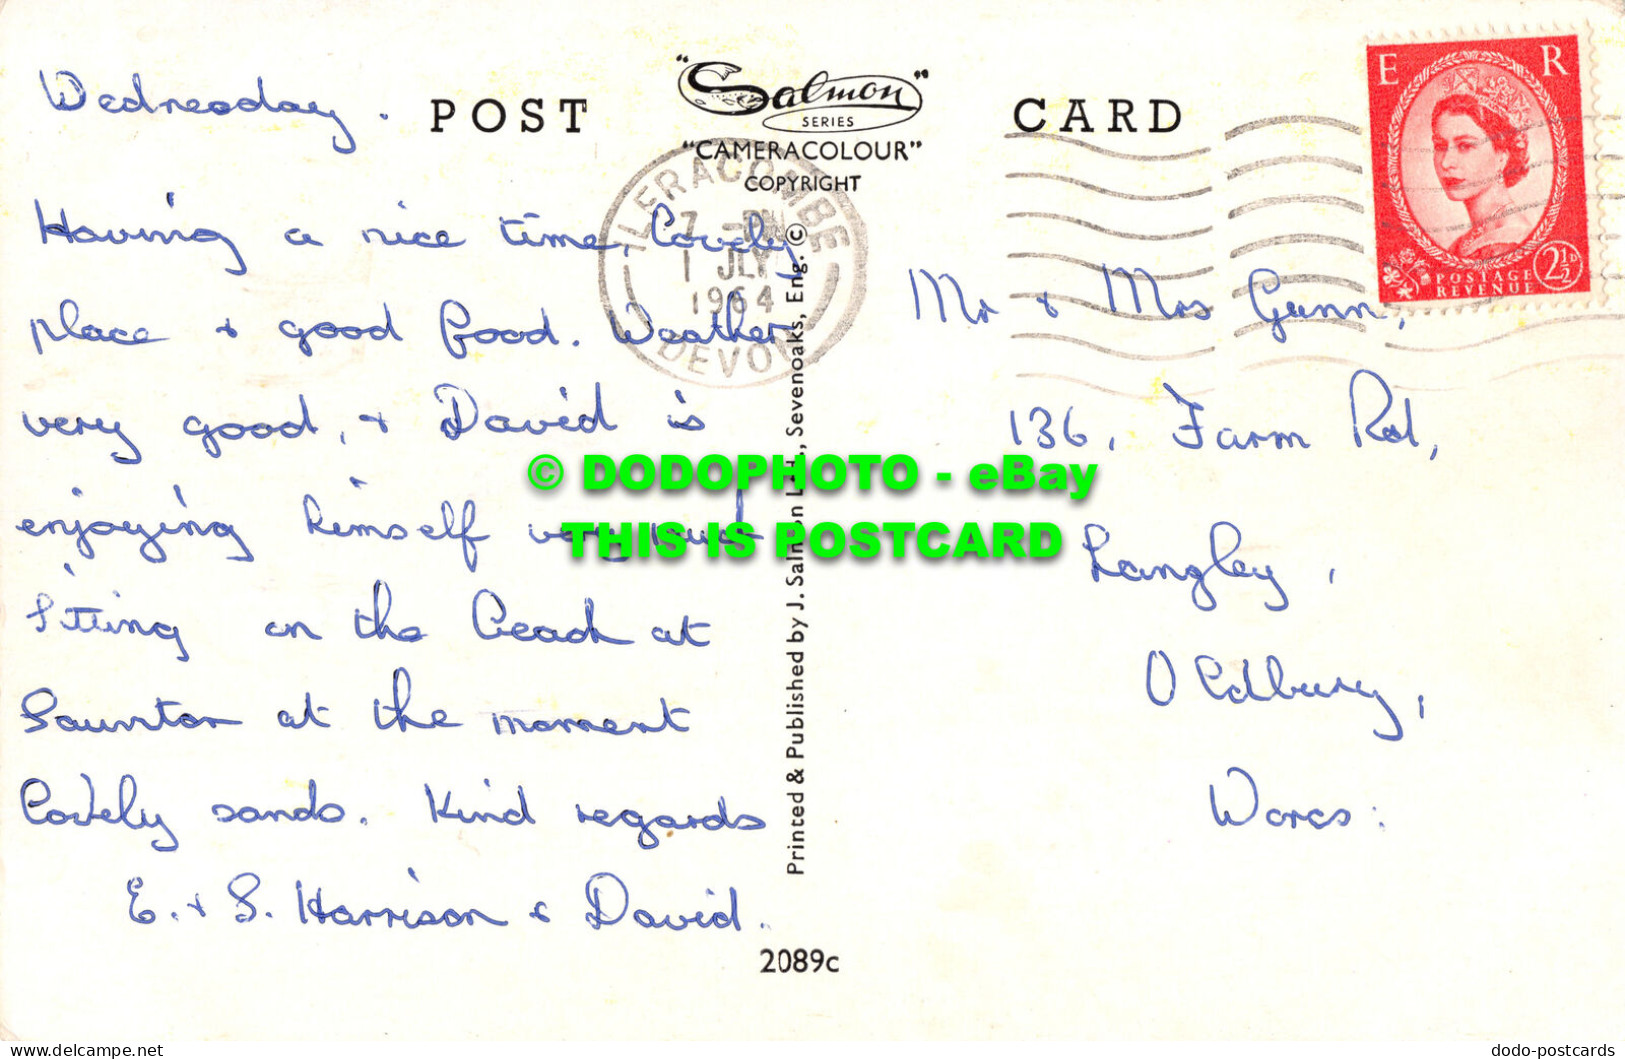 Wednesday.
POST
"Salmon"
SERIES
"CAMERACOLOUR"
COPYRIGHT
CARD
E R
POSTAGE
REVENUE
2½D
ILFRACOMBE
7 - PM
1 JLY
1964
DEVON
Having a nice time, lovely
place & good food. Weather
very good, & David is
enjoying himself very much
Sitting on the beach at
Saunton at the moment
Lovely sands. Kind regards
E. & S. Harrison & David.
Printed & Published by J. Salmon Ltd., Sevenoaks, Eng. ©
Mr & Mrs Gunn,
136, Farm Rd,
Langley,
Oldbury,
Worcs:
2089c
© DODOPHOTO - eBay
THIS IS POSTCARD
delcampe.net
dodo-postcards